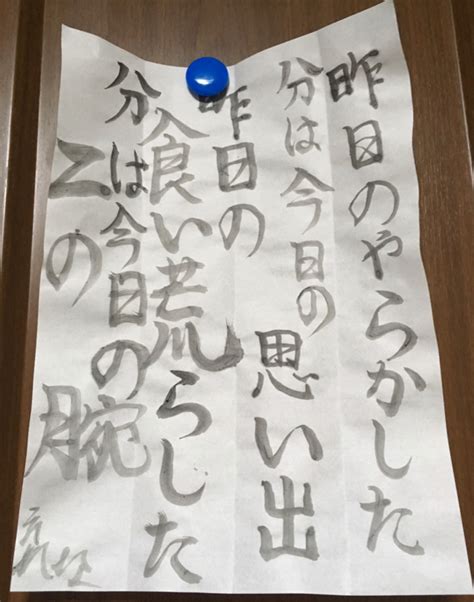 昨日のやらかした
分は今日の思い出
昨日の
食い荒らした
分は今日の
二の腕